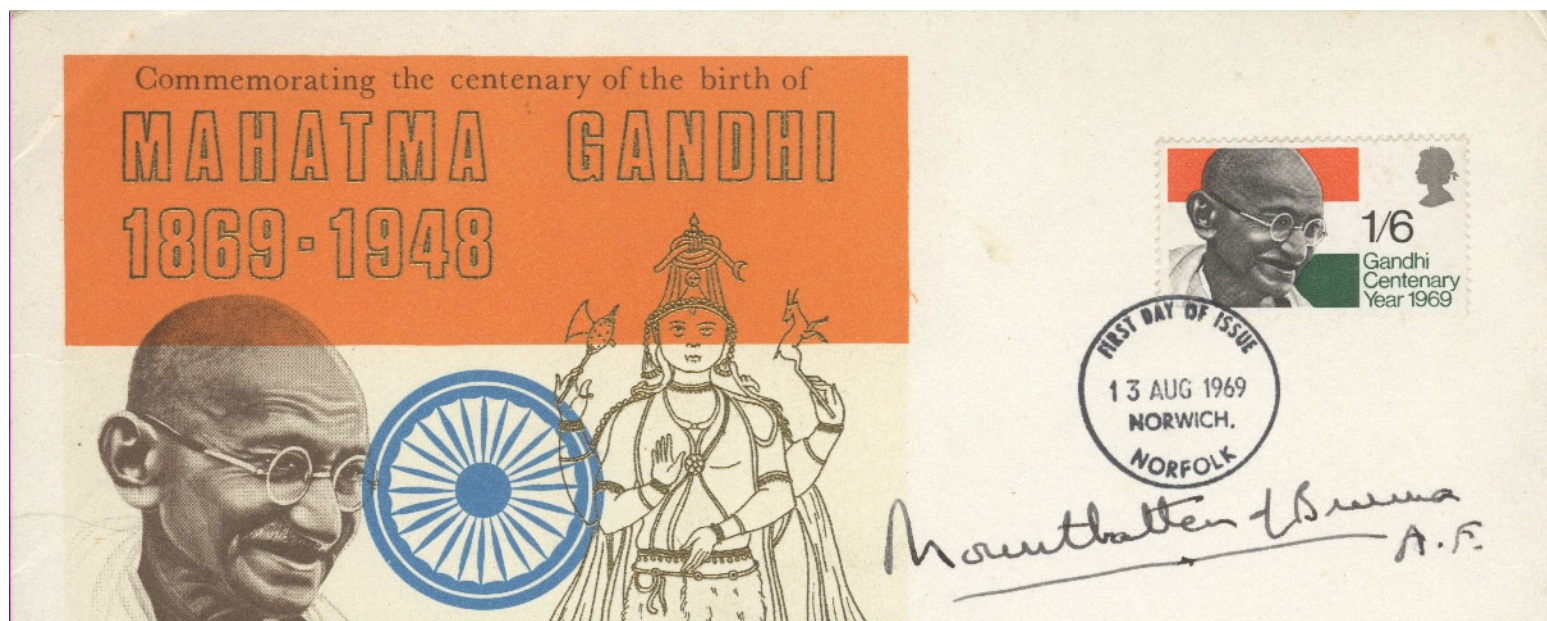 Commemorating the centenary of the birth of
MAHATMA GANDHI
1869-1948
1/6
Gandhi
Centenary
Year 1969
FIRST DAY OF ISSUE
13 AUG 1969
NORWICH.
NORFOLK
Mountbatten of Burma
A.F.